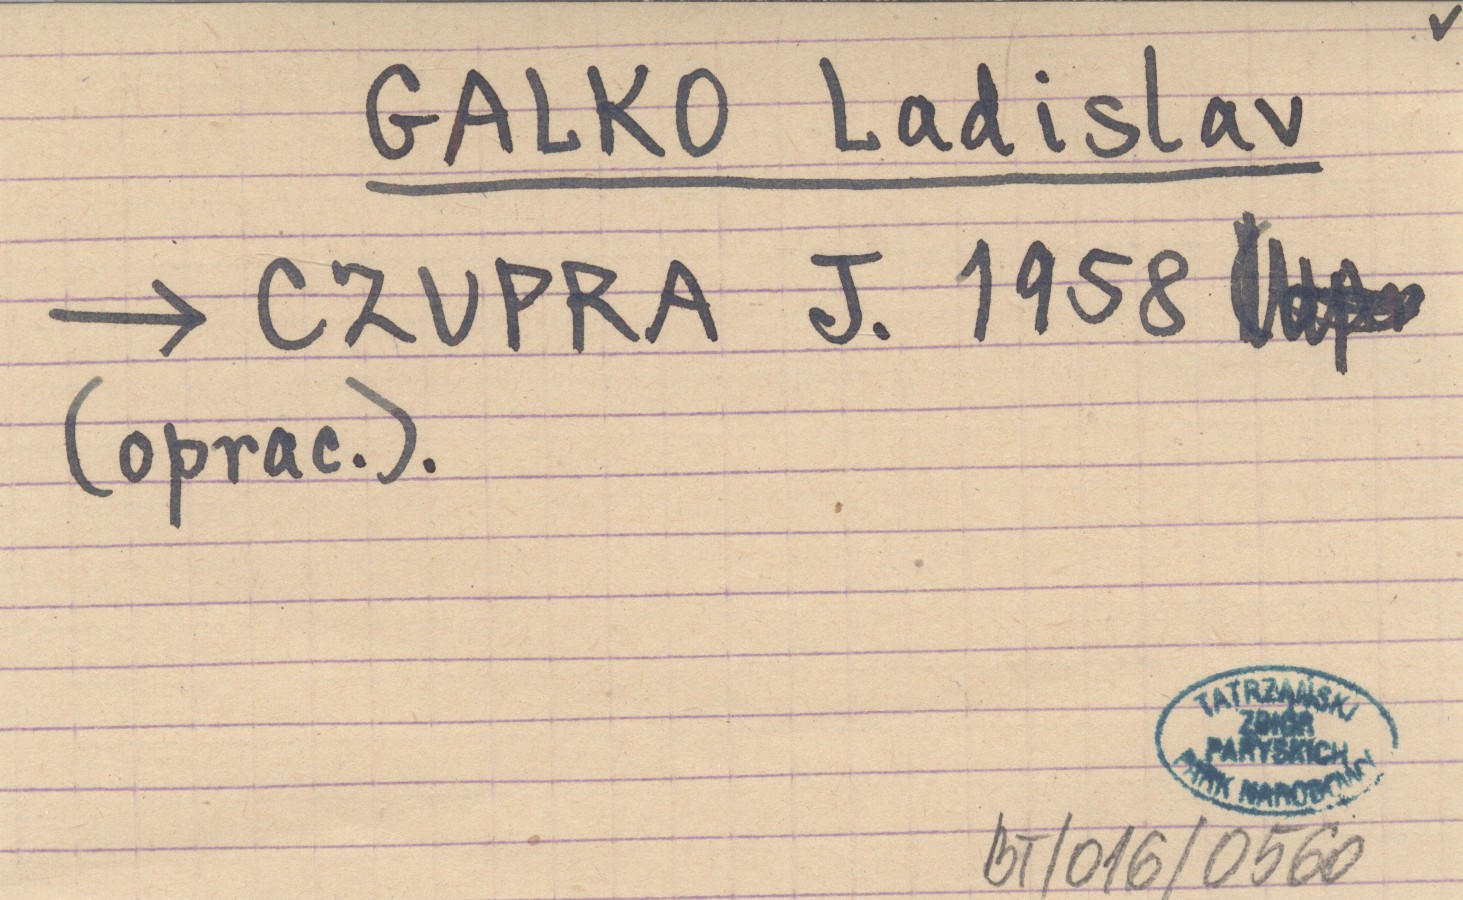 ✓
GALKO Ladislav
→ CZUPRA J. 1958
(oprac.).
TATRZAŃSKI
ZBIÓR
PARYSKICH
PARK NARODOWY
BT/016/0560